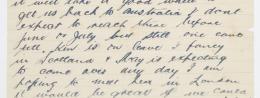 it will take a good while
get us back to Australia I dont
expect to reach there before
June or July but still one cant
tell. Ken is on leave I fancy
in Scotland & May is expecting
to come over any day I am
hoping to meet him in London
it would be great if we could